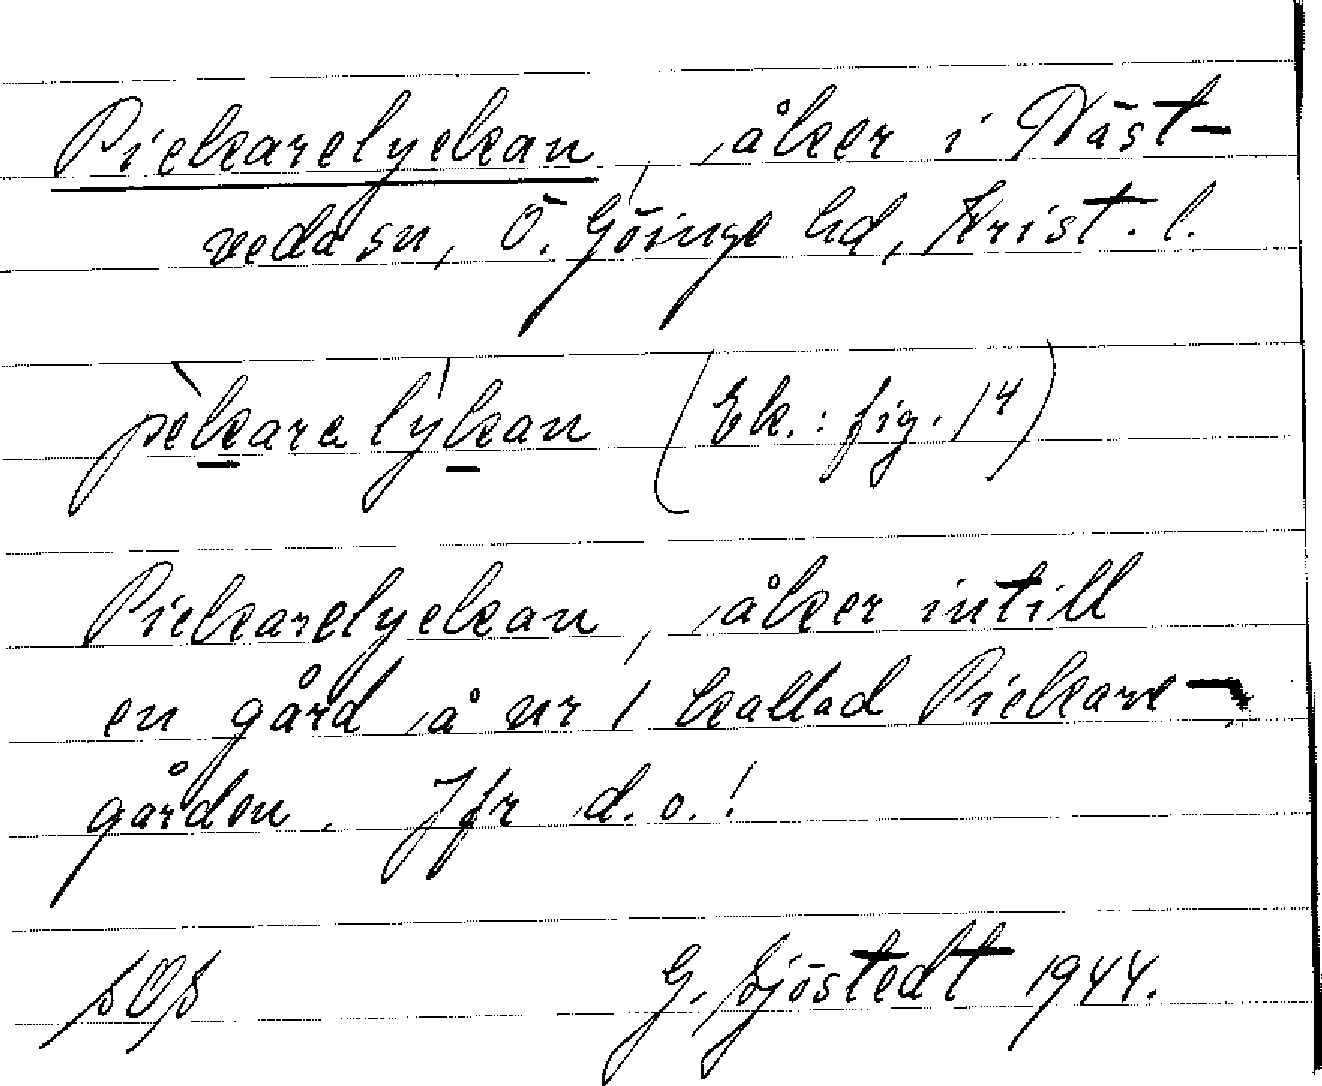 Pickarelyckan, åker i Näst-
veda sn, Ö. Göinge hd, Krist. l.
pèkara lýkan (Ek.: fig. 14)
Pickarelyckan, åker intill
en gård å nr 1 kallad Pickare-
gården. Jfr d.o.!
SOS
G. Sjöstedt 1944.